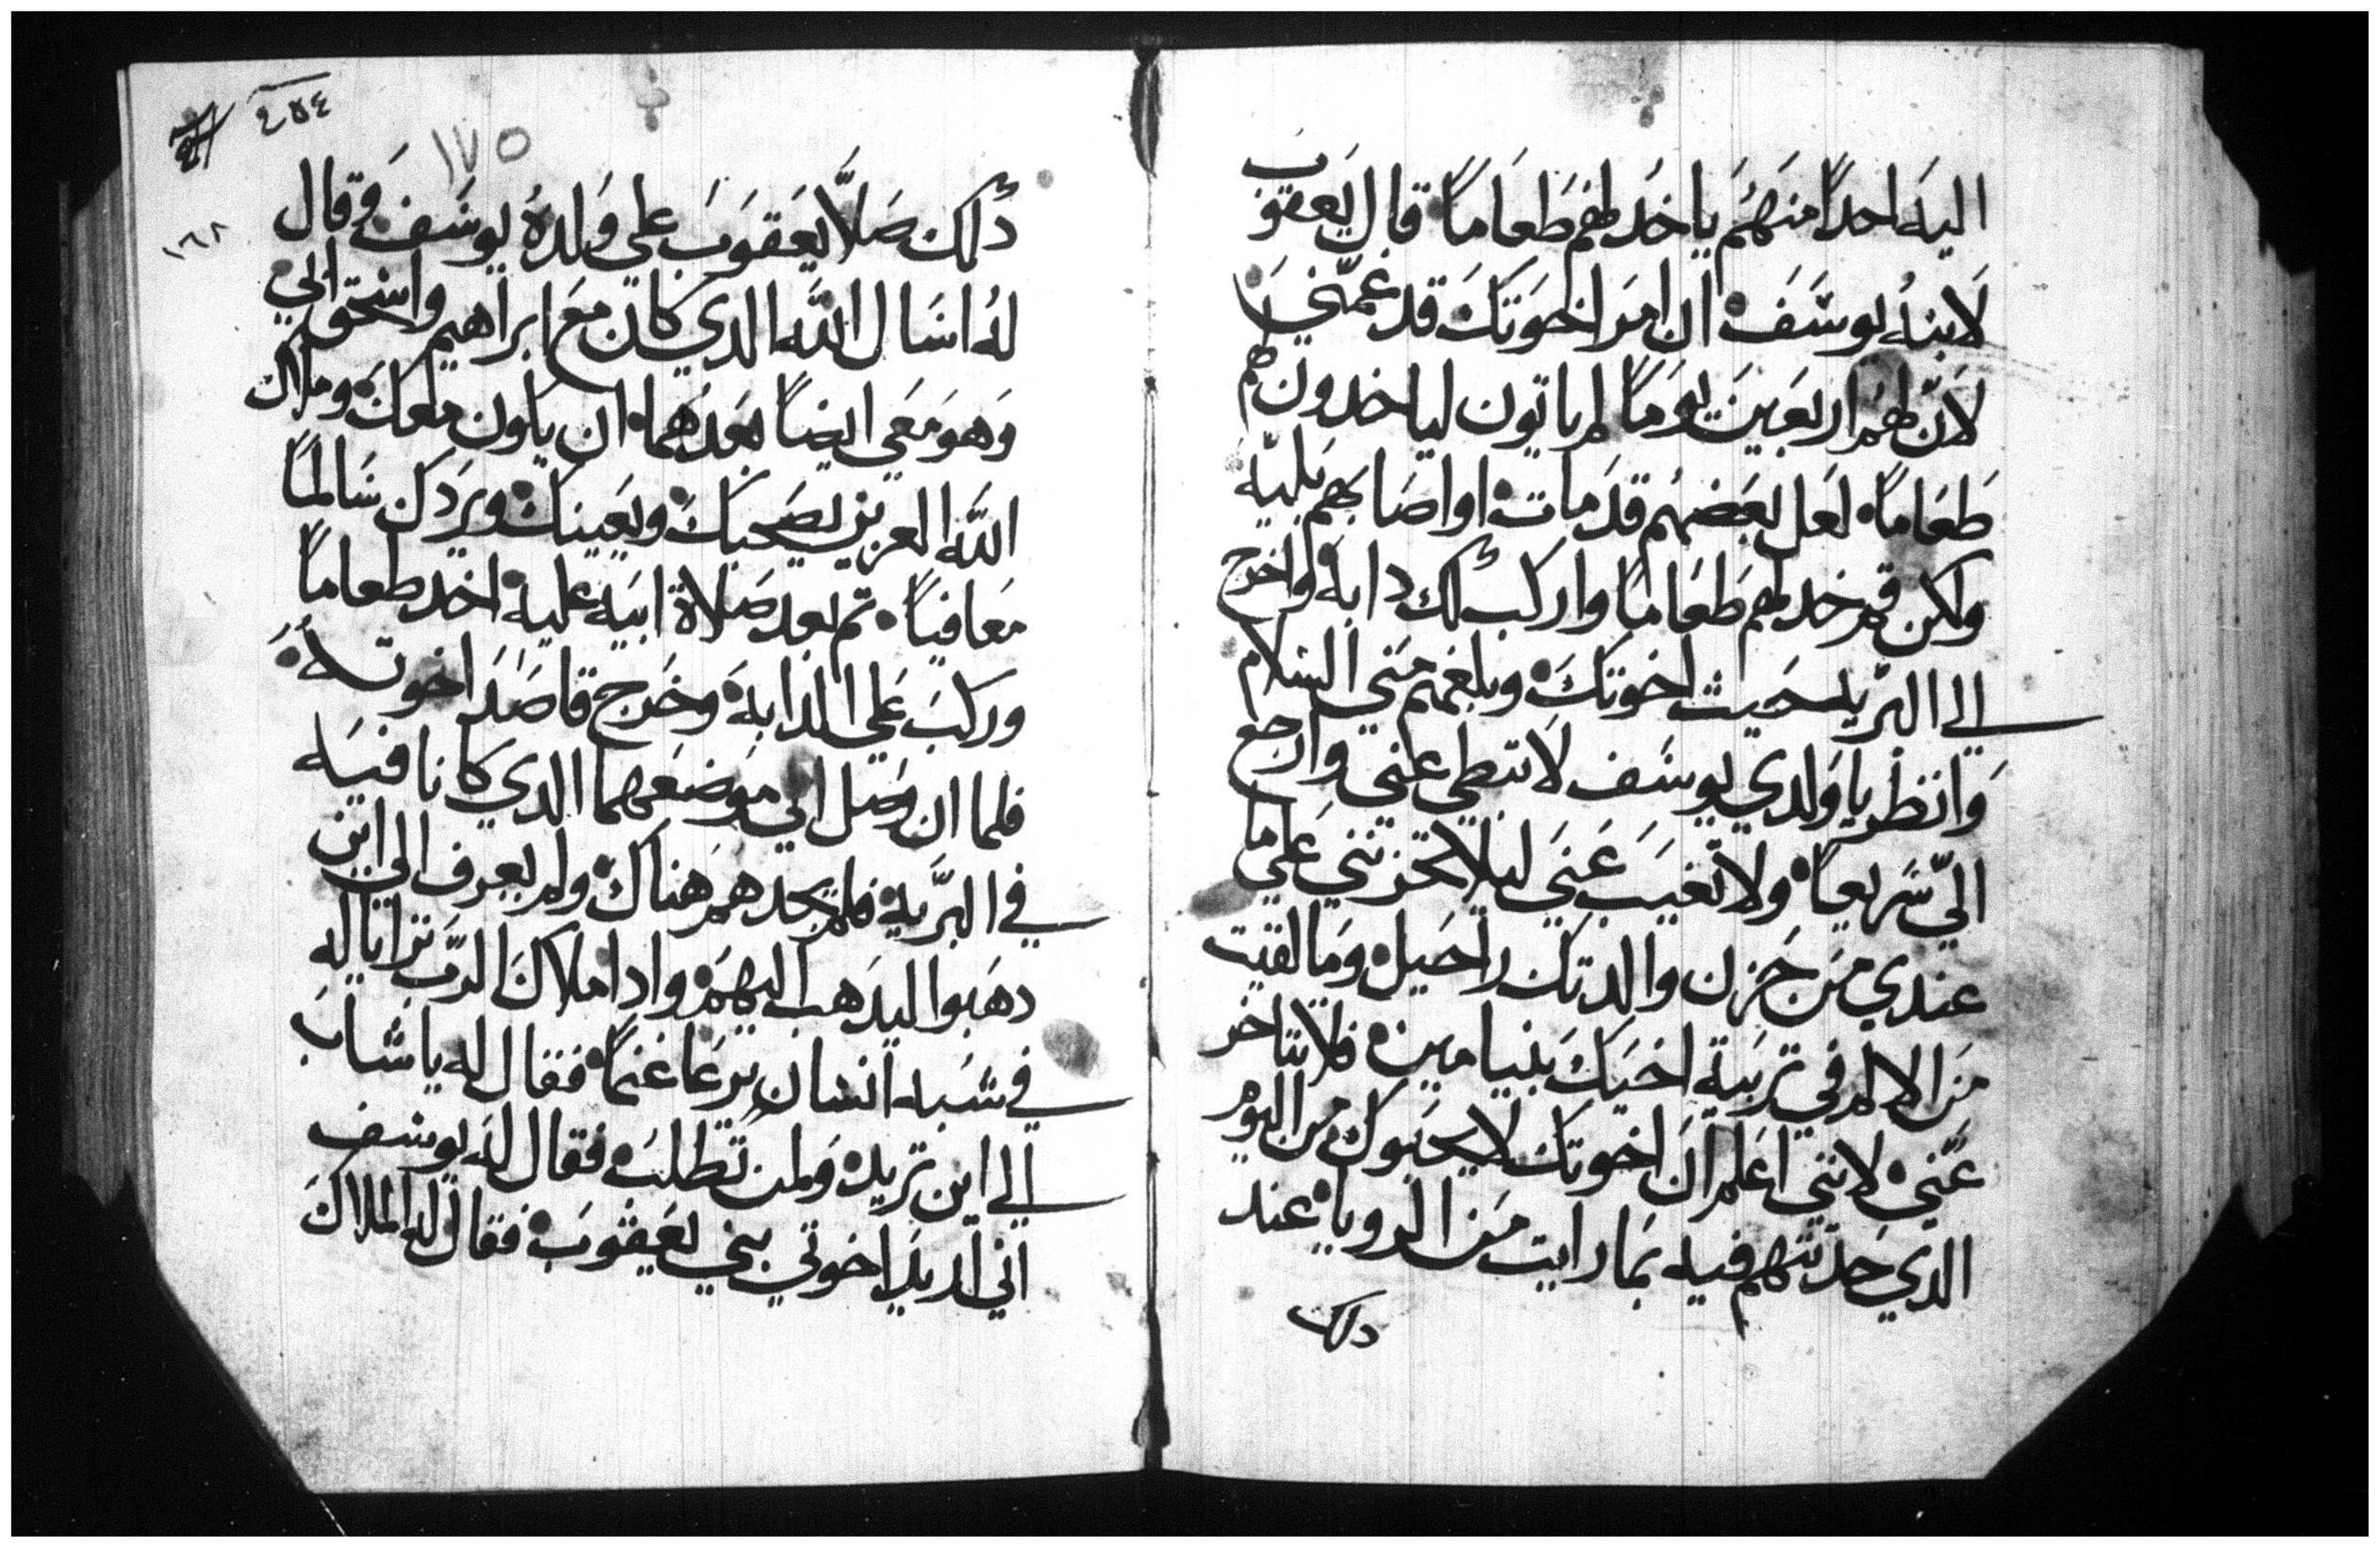 اليه احداً منهم ياخد لهم طعاماً قال يعقوب
لابنه يوسف ان امر اخوتك قد غمني
لان لهم اربعين يوماً لم ياتون لياخدون لهم
طعاماً لعل بعضهم قد مات او اصابهم بليه
ولكن قم خد لهم طعاماً واركب لك دابه واخرج
الي البريه حيث اخوتك وبلغهم مني السلام
وانظر يا ولدي يوسف لا تبطي عني وارجع
اليّ سريعاً ولا تغيب عني ليلا تحزنني علي ما
عندي من حزن والدتك راحيل وما لقيت
من الالم في تربية اخيك بنيامين فلا تتاخر
عني لانني اعلم ان اخوتك لا يحبوك من اليوم
الدي حدثتهم فيه بما رايت من الرويا عند
دلك
٤٥٤
١٧٥
١٦٨
دلك صلّا يعقوب علي ولده يوسف وقال
له اسال الله الدي كان مع ابراهيم واسحق ابي
وهو معي ايضاً بعدهما ان يكون معك وملاك
الله العزيز يصحبك ويعينك ويردك سالماً
معافياً تم بعد صلاة ابيه عليه اخد طعاماً
وركب علي الدابه وخرج قاصد اخوته
فلما ان وصل الي موضعهما الدي كانا فيه
في البريه فلم يجدهم هناك ولم يعرف الي اين
دهبوا ليدهب اليهم وادا ملاك الرب ترايا له
في شبه انسان يرعا غنماً فقال له يا شاب
الي اين تريد ولمن تطلب فقال له يوسف
اني اريد اخوتي بني يعقوب فقال له الملاك